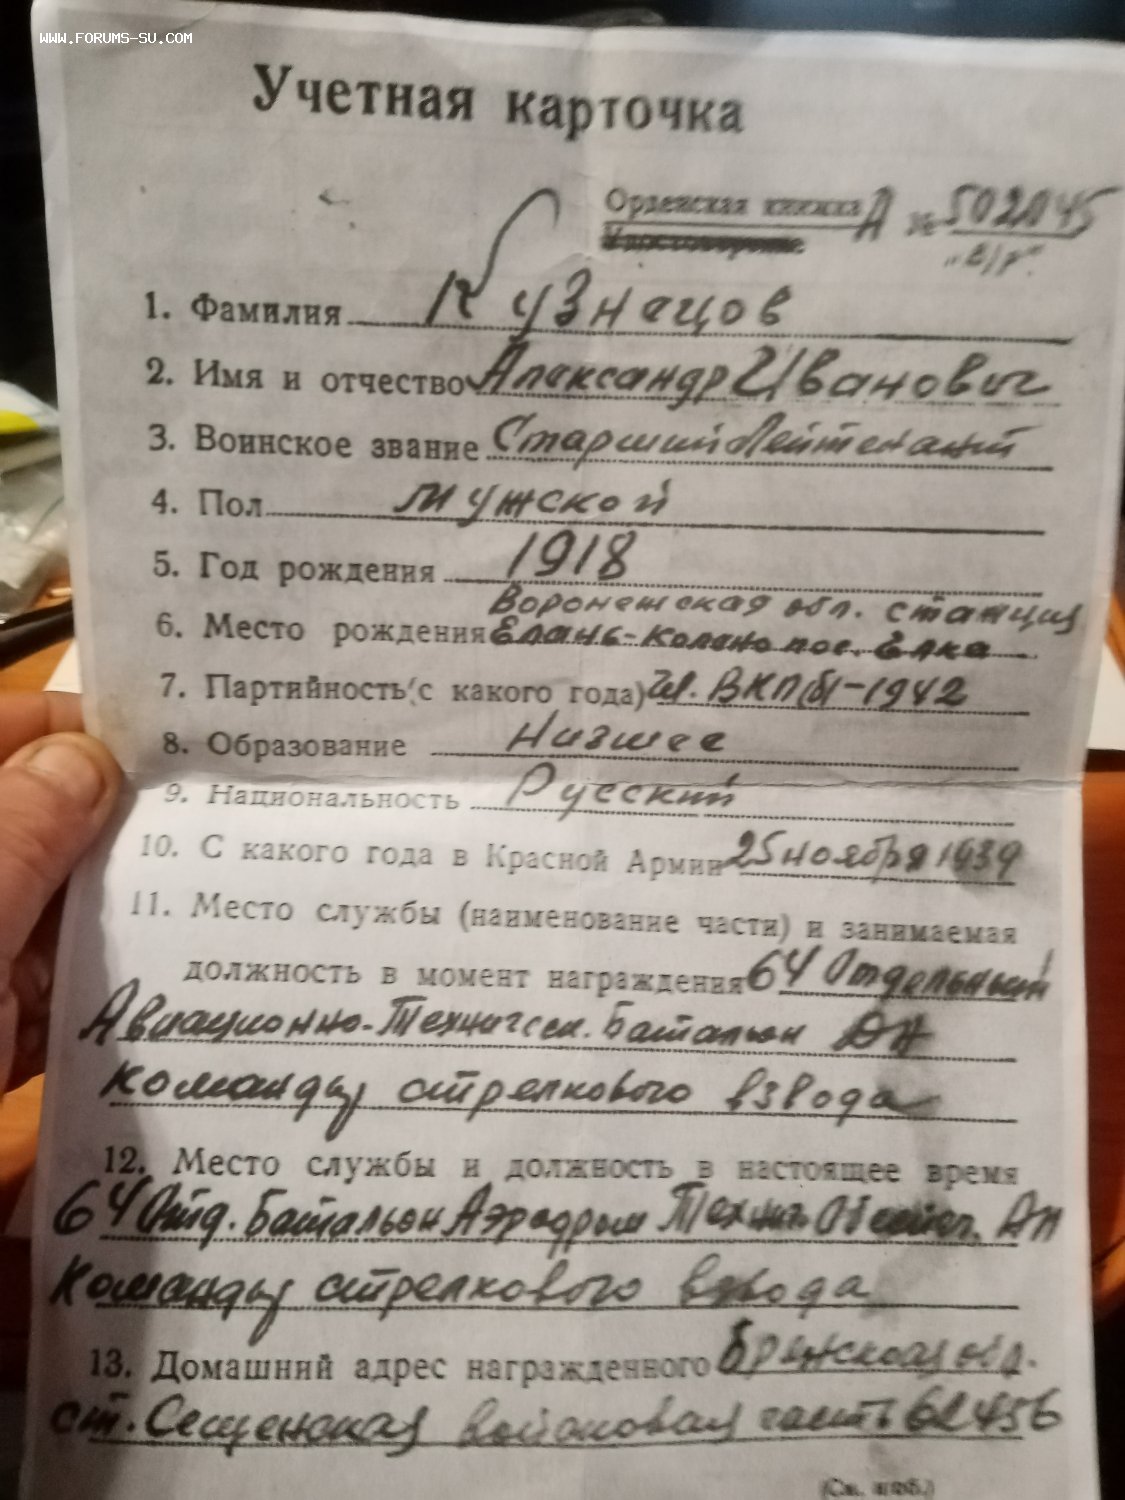 WWW.FORUMS-SU.COM
Учетная карточка
Орденская книжка А № 502045
"б/р"
1. Фамилия Кузнецов
2. Имя и отчество Александр Иванович
3. Воинское звание Старший Лейтенант
4. Пол мужской
5. Год рождения 1918
Воронежская обл. станция
6. Место рождения Елань-Колено пос. Елка
7. Партийность (с какого года) чл. ВКП(б)-1942
8. Образование Низшее
9. Национальность Русский
10. С какого года в Красной Армии 25 ноября 1939
11. Место службы (наименование части) и занимаемая
должность в момент награждения 64 Отдельный
Авиационно-Техническ. Батальон
Командир стрелкового взвода
12. Место службы и должность в настоящее время
64 Отд. Батальон Аэродром Технич.
Командир стрелкового взвода
13. Домашний адрес награжденного Брянская обл.
ст. Сещенская войсковая часть 62456
(См. на об.)